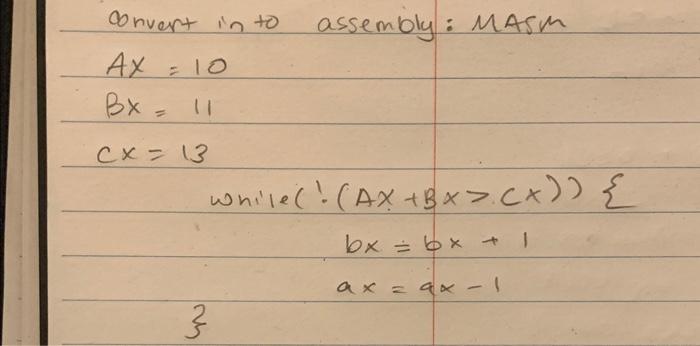 convert in to assembly: MASM
AX = 10
BX = 11
CX = 13
while(!(AX+BX>CX)) {
bx = bx + 1
ax = ax - 1
}